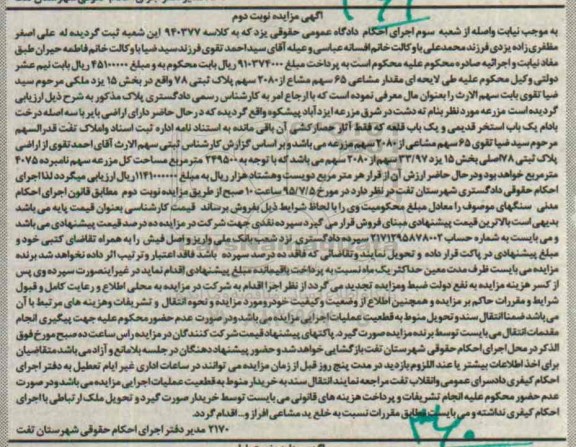 آگهی مزایده نوبت دوم
به موجب نیابت واصله از شعبه سوم اجرای احکام دادگاه عمومی حقوقی یزد که به کلاسه ۹۴۰۳۷۷ این شعبه ثبت گردیده له علی اصغر
مظفری زاده یزدی فرزند محمدعلی با وکالت خانم افسانه عباسی و علیه آقای سید احمد تقوی فرزند سید ضیا با وکالت خانم فاطمه حیران طبق
مفاد نیابت و اجرائیه صادره محکوم علیه محکوم است به پرداخت مبلغ ۹۱۰۳۷۴۰۰۰ ریال بابت محکوم به و مبلغ ۴۵۱۰۰۰۰۰ ریال بابت نیم عشر
دولتی وکیل محکوم علیه طی لایحه ای مقدار مشاعی ۶۵ سهم مشاع از ۲۰۸۰ سهم پلاک ثبتی ۷۸ واقع در بخش ۱۵ یزد ملکی مرحوم سید
ضیا تقوی بابت سهم الارث را بعنوان مال معرفی نموده است که با ارجاع امر به کارشناس رسمی دادگستری پلاک مذکور به شرح ذیل ارزیابی
گردیده است مزرعه مورد نظر بنام ته دشت در شرق مزرعه ایزد آباد پیشکوه واقع گردیده که در حال حاضر دارای اراضی بایر با سه اصله درخت
بادام یک باب استخر قدیمی و یک باب قلعه که فقط آثار حصارکشی آن باقی مانده به استناد نامه اداره ثبت اسناد واملاک تفت قدرالسهم
مرحوم سید ضیا تقوی ۶۵ سهم مشاعی از ۲۰۸۰ سهم مزرعه می باشد و بر اساس گزارش کارشناس ثبتی سهم الارث آقای احمد تقوی از اراضی
پلاک ثبتی ۷۸ اصلی بخش ۱۵ یزد ۳۳/۹۷ سهم از ۲۰۸۰ سهم می باشد که با توجه به ۲۴۹۵۰۰ متر مربع مساحت کل مزرعه سهم نامبرده ۴۰۷۵
متر مربع خواهد بود و در حال حاضر ارزش آن از قرار هر متر مربع دویست وهشتاد هزار ریال به مبلغ ۱۱۴۱۰۰۰۰۰۰ ریال ارزیابی میگردد لذا اجرای
احکام حقوقی دادگستری شهرستان تفت در نظر دارد در مورخ ۹۵/۷/۵ ساعت ۱۰ صبح از طریق مزایده نوبت دوم مطابق قانون اجرای احکام
مدنی سنگهای موصوف را معادل مبلغ محکومیت وی را با لحاظ شرایط ذیل بفروش برساند قیمت کارشناسی بعنوان قیمت پایه می باشد
بدیهی است بالاترین قیمت پیشنهادی مبنای فروش قرار می گیرد سپرده نقدی جهت شرکت در مزایده ده درصد قیمت پیشنهادی می باشد
و می بایست به شماره حساب ۲۱۷۱۲۹۵۸۷۸۰۰۲ سپرده دادگستری نزد شعب بانک ملی واریز و اصل فیش را به همراه تقاضای کتبی خود و
مبلغ پیشنهادی در پاکت قرار داده و تحویل نمایند و تقاضائی که فاقد ده درصد سپرده باشد فاقد اعتبار و ترتیب اثر داده نخواهد شد برنده
مزایده می بایست ظرف مدت معین حداکثر یک ماه نسبت به پرداخت باقیمانده مبلغ پیشنهادی اقدام نماید در غیر اینصورت سپرده وی پس
از کسر هزینه مزایده به نفع دولت ضبط ومزایده تجدید می گردد از نظر اجرا اقدام به شرکت در مزایده به محلی اطلاع و رعایت کامل و قبول
شرایط و مقررات حاکم بر مزایده و همچنین اطلاع از وضعیت وکیفیت خودرو مورد مزایده و نحوه انتقال و تشریفات وهزینه های مرتبط با آن
می باشد ضمنا انتقال سند و تحویل منوط به قطعیت عملیات اجرایی مزایده می باشد و در صورت عدم حضور محکوم علیه جهت پیگیری انجام
مقدمات انتقال می بایست توسط برنده مزایده صورت گیرد. پاکتهای پیشنهاد قیمت شرکت کنندگان در مزایده راس ساعت ده صبح مورخ فوق
الذکر در محل اجرای احکام حقوقی شهرستان تفت بازگشایی خواهد شد و حضور پیشنهاد دهندگان در جلسه بلامانع و آزاد می باشد متقاضیان
برای اخذ اطلاعات بیشتر یا عند اللزوم بازدید در مدت پنج روز قبل از زمان مزایده می توانند در ساعات اداری غیر ایام تعطیل به دفتر اجرای
احکام کیفری دادسرای عمومی وانقلاب تفت مراجعه نمایند انتقال سند به خریدار منوط به قطعیت عملیات اجرایی مزایده می باشد ودر صورت
عدم حضور محکوم علیه انجام تشریفات و پرداخت هزینه های قانونی می بایست توسط خریدار صورت گیرد و تحویل ملک ارتباطی با اجرای
احکام کیفری نداشته و می بایست مطابق مقررات نسبت به خلع ید مشاعی افراز و... اقدام گردد.
۲۱۷۰ مدیر دفتر اجرای احکام حقوقی شهرستان تفت